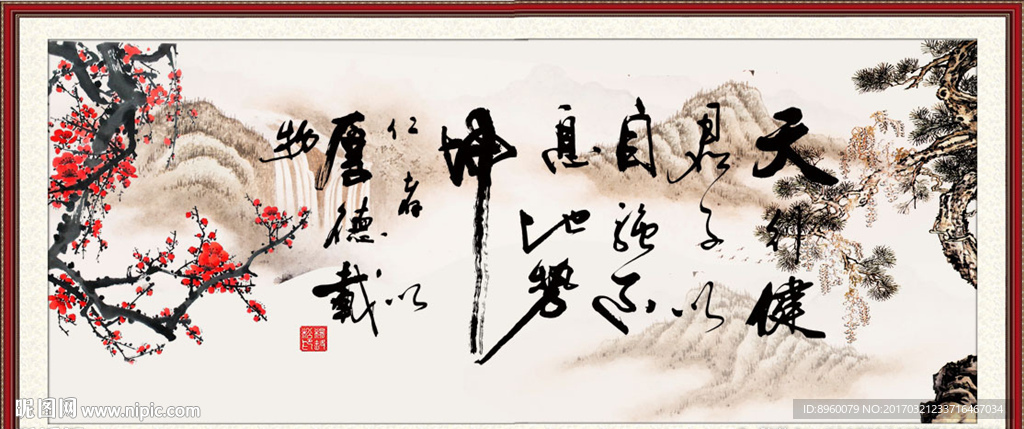 天行健
君子以
自强不
息地势
坤
仁者以
厚德载
物
昵图网 www.nipic.com
ID:8960079 NO:20170321233716467034